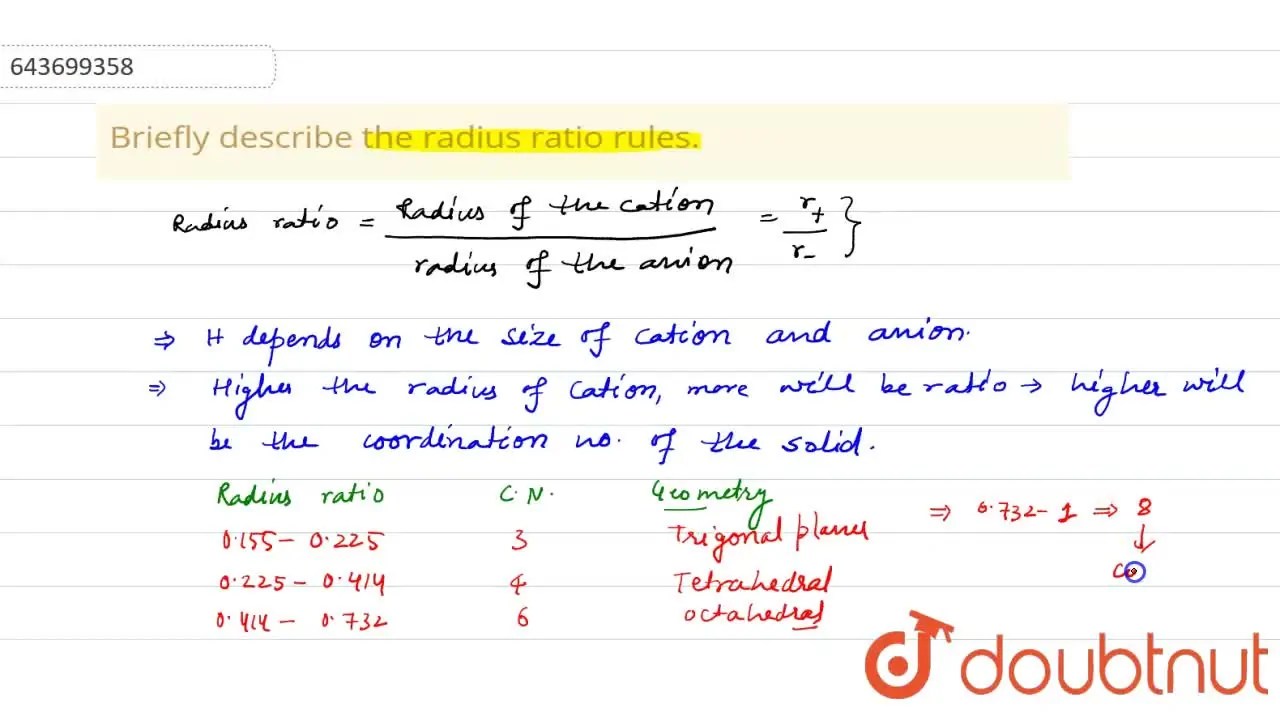 643699358
Briefly describe the radius ratio rules.
Radius ratio = Radius of the cation / radius of the anion = r+ / r- }
⇒ It depends on the size of cation and anion.
⇒ Higher the radius of cation, more will be ratio → higher will
be the coordination no. of the solid.
Radius ratio C.N. Geometry
0.155 - 0.225 3 Trigonal planer
0.225 - 0.414 4 Tetrahedral
0.414 - 0.732 6 octahedral
⇒ 0.732 - 1 ⇒ 8
↓
doubtnut